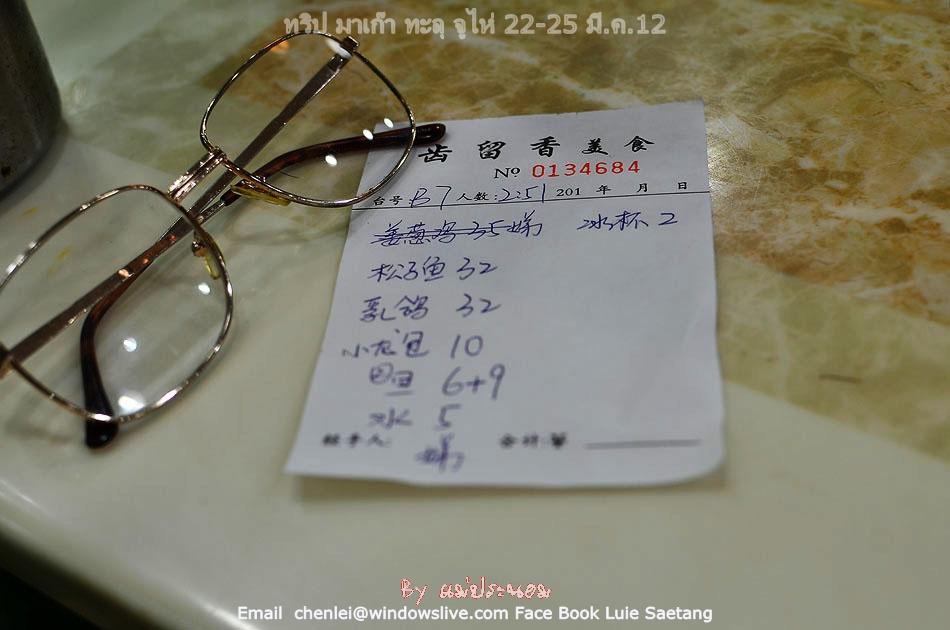 ทริป มาเก๊า ทะลุ จูไห่ 22-25 มี.ค.12
齿留香美食
No 0134684
台号 B7 人数: 2:51 201 年 月 日
姜葱鸡 35 冰杯 2
松子鱼 32
乳鸽 32
小龙包 10
6+9
冰 5
经手人: 合计:¥
By แม่ประนอม
Email chenlei@windowslive.com Face Book Luie Saetang